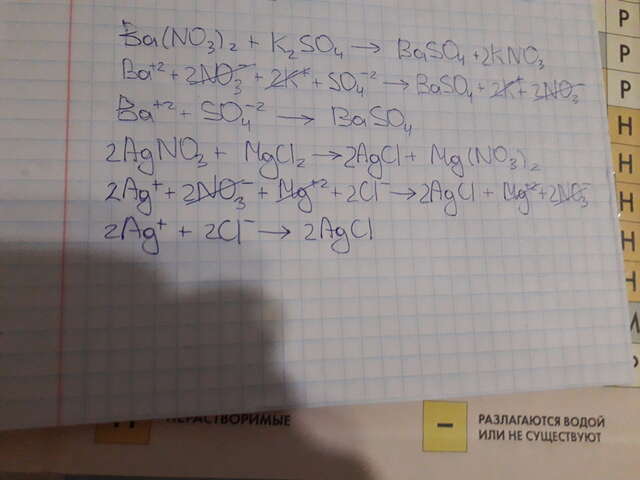 Ba(NO₃)₂ + K₂SO₄ → BaSO₄ + 2KNO₃
Ba⁺² + 2NO₃⁻ + 2K⁺ + SO₄⁻² → BaSO₄ + 2K⁺ + 2NO₃⁻
Ba⁺² + SO₄⁻² → BaSO₄
2AgNO₃ + MgCl₂ → 2AgCl + Mg(NO₃)₂
2Ag⁺ + 2NO₃⁻ + Mg⁺² + 2Cl⁻ → 2AgCl + Mg⁺² + 2NO₃⁻
2Ag⁺ + 2Cl⁻ → 2AgCl
Р
Р
Р
Н
Н
Н
Н
Н
НЕРАСТВОРИМЫЕ
–
РАЗЛАГАЮТСЯ ВОДОЙ
ИЛИ НЕ СУЩЕСТВУЮТ